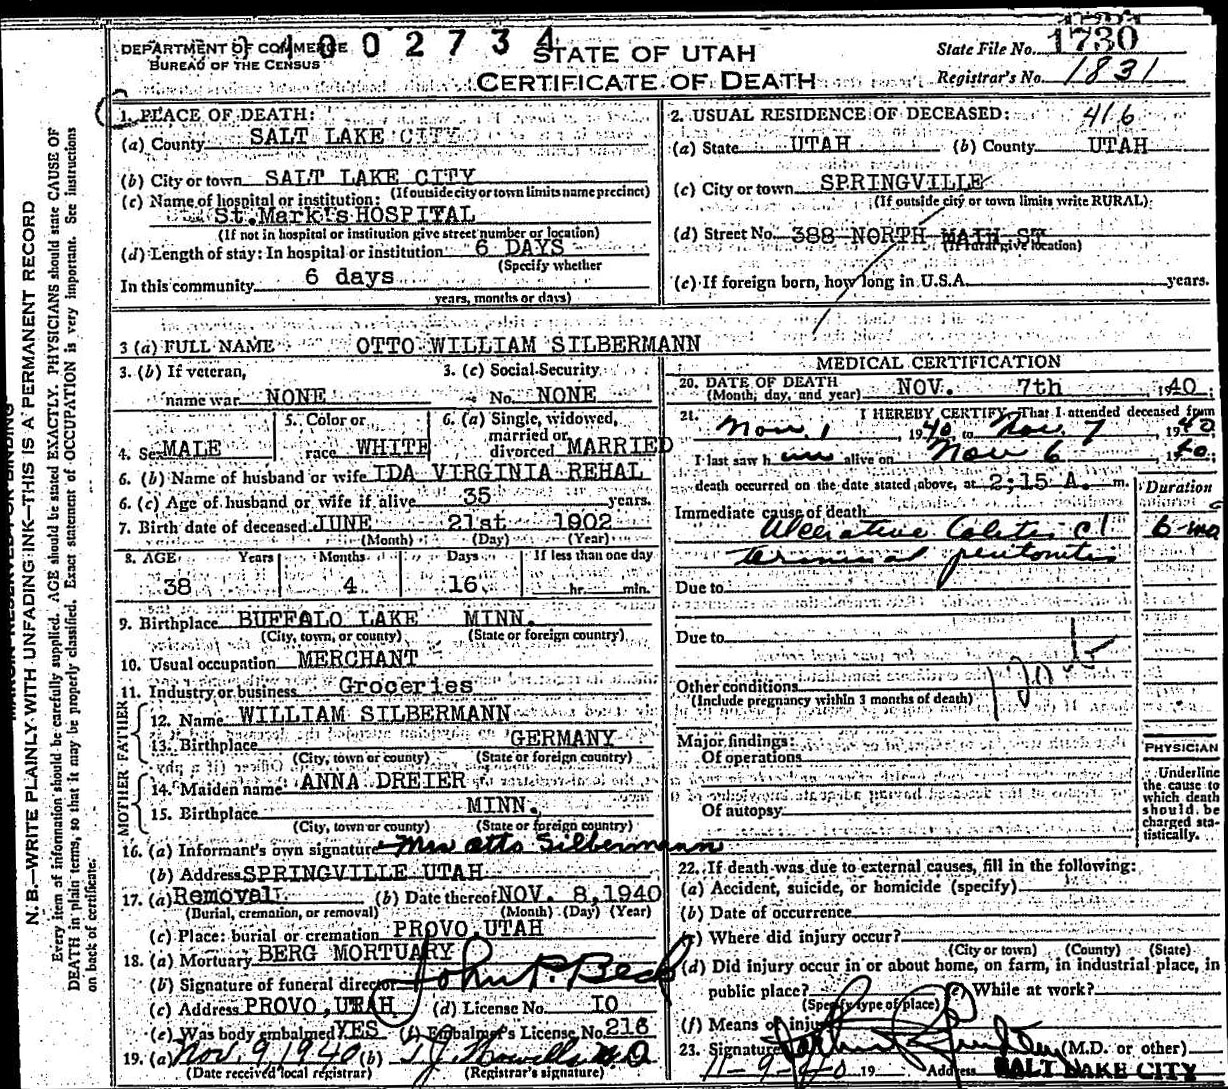 DEPARTMENT OF COMMERCE
BUREAU OF THE CENSUS
1002734
STATE OF UTAH
CERTIFICATE OF DEATH
State File No. 1730
Registrar's No. 1831
N. B.—WRITE PLAINLY WITH UNFADING INK—THIS IS A PERMANENT RECORD
Every item of information should be carefully supplied. AGE should be stated EXACTLY. PHYSICIANS should state CAUSE OF
DEATH in plain terms, so that it may be properly classified. Exact statement of OCCUPATION is very important. See instructions
on back of certificate.
1. PLACE OF DEATH:
(a) County SALT LAKE CITY
(b) City or town SALT LAKE CITY
(If outside city or town limits name precinct)
(c) Name of hospital or institution:
St.Mark's HOSPITAL
(If not in hospital or institution give street number or location)
(d) Length of stay: In hospital or institution 6 DAYS
(Specify whether
In this community 6 days
years, months or days)
2. USUAL RESIDENCE OF DECEASED: 416
(a) State UTAH (b) County UTAH
(c) City or town SPRINGVILLE
(If outside city or town limits write RURAL)
(d) Street No. 388 NORTH MAIN ST
(If rural give location)
(e) If foreign born, how long in U.S.A. years.
3 (a) FULL NAME OTTO WILLIAM SILBERMANN
3. (b) If veteran, 3. (c) Social Security
name war NONE No. NONE
4. Sex MALE
5. Color or
race WHITE
6. (a) Single, widowed,
married or
divorced MARRIED
6. (b) Name of husband or wife IDA VIRGINIA REHAL
6. (c) Age of husband or wife if alive 35 years.
7. Birth date of deceased JUNE 21st 1902
(Month) (Day) (Year)
8. AGE Years Months Days If less than one day
38 4 16 hr. min.
9. Birthplace BUFFALO LAKE MINN.
(City, town, or county) (State or foreign country)
10. Usual occupation MERCHANT
11. Industry or business Groceries
FATHER
12. Name WILLIAM SILBERMANN
13. Birthplace GERMANY
(City, town or county) (State or foreign country)
MOTHER
14. Maiden name ANNA DREIER
15. Birthplace MINN.
(City, town or county) (State or foreign country)
16. (a) Informant's own signature Mrs Otto Silbermann
(b) Address SPRINGVILLE UTAH
17. (a) Removal (b) Date thereof NOV. 8,1940
(Burial, cremation, or removal) (Month) (Day) (Year)
(c) Place: burial or cremation PROVO UTAH
18. (a) Mortuary BERG MORTUARY
(b) Signature of funeral director John P. Beck
(c) Address PROVO,UTAH (d) License No. IO
(e) Was body embalmed YES (f) Embalmer's License No. 216
19. (a) Nov. 9 1940 (b)
(Date received local registrar) (Registrar's signature)
MEDICAL CERTIFICATION
20. DATE OF DEATH
(Month, day, and year) NOV. 7th 1940
21. I HEREBY CERTIFY, That I attended deceased from
Nov. 1 1940 to Nov. 7 1940
I last saw him alive on Nov 6 1940;
death occurred on the date stated above, at 2;15 A. m.
Duration
Immediate cause of death
Ulcerative Colitis c̄ 6 mo
terminal peritonitis
Due to
Due to
Other conditions
(Include pregnancy within 3 months of death)
Major findings:
Of operations
Of autopsy
PHYSICIAN
Underline
the cause to
which death
should be
charged sta-
tistically.
22. If death was due to external causes, fill in the following:
(a) Accident, suicide, or homicide (specify)
(b) Date of occurrence
(c) Where did injury occur?
(City or town) (County) (State)
(d) Did injury occur in or about home, on farm, in industrial place, in
public place? (e) While at work?
(Specify type of place)
(f) Means of injury
23. Signature (M.D. or other)
11-9-40 19 Address SALT LAKE CITY